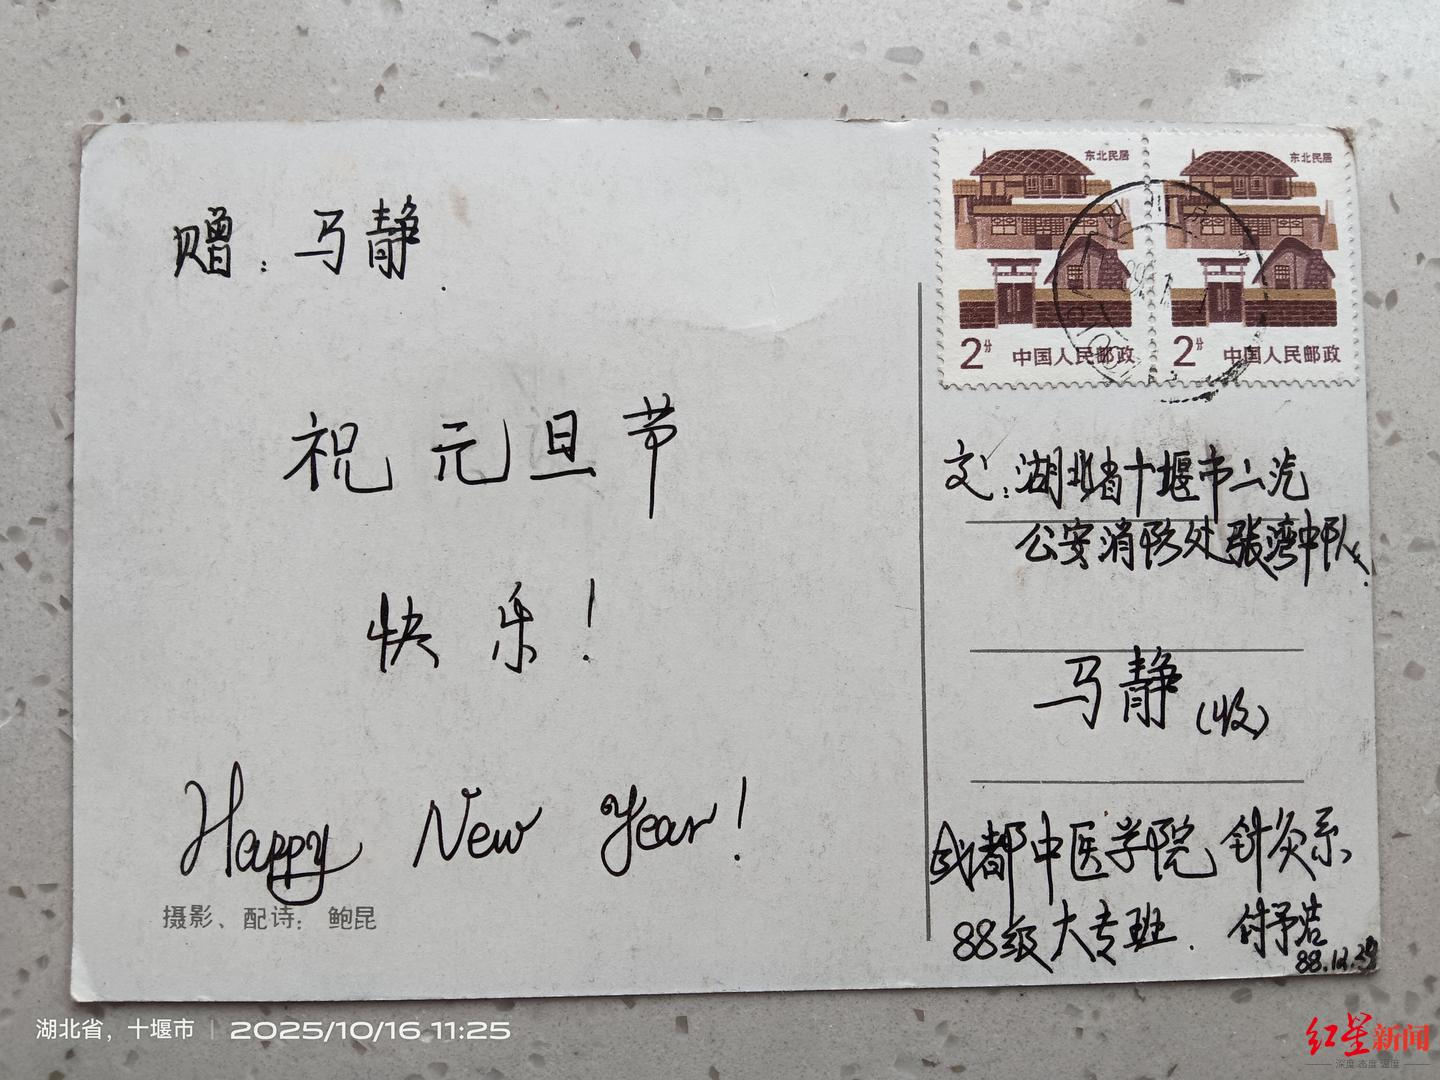 赠：马静.
祝元旦节
快乐！
Happy New Year!
摄影、配诗：鲍昆
东北民居
2分 中国人民邮政
东北民居
2分 中国人民邮政
交：湖北省十堰市二汽
公安消防处张湾中队
马静（收）
成都中医学院 针灸系
88级大专班. 付予浩
88.12.
湖北省，十堰市 | 2025/10/16 11:25
红星新闻
深度 态度 温度